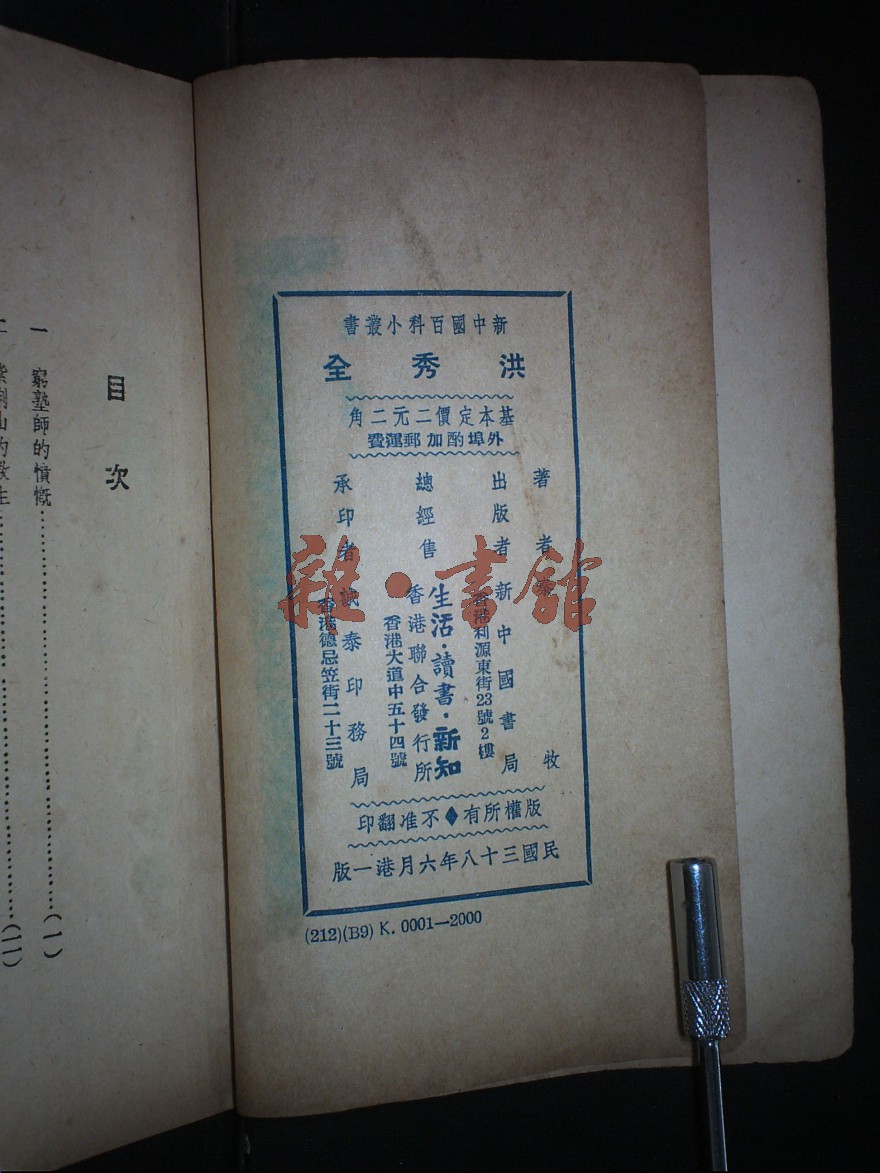 新中國百科小叢書
洪秀全
基本定價二元二角
外埠酌加郵運費
著者 牧
出版者 新中國書局
香港利源東街23號2樓
總經售 生活·讀書·新知
香港聯合發行所
香港大道中五十四號
承印者 誠泰印務局
香港德忌笠街二十三號
版權所有◆不准翻印
民國三十八年六月港一版
(212)(B9) K. 0001—2000
雜·書館
目次
一 窮塾師的憤慨……(一)
二 紫荊山的發生……(一一)